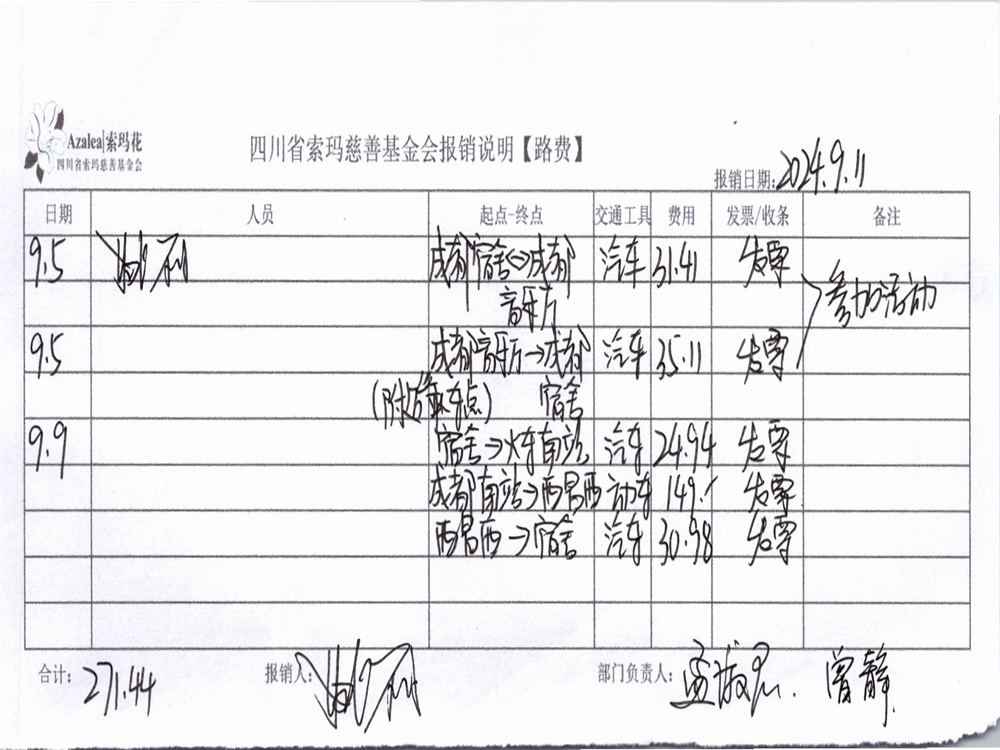 Azalea|索玛花
四川省索玛慈善基金会
四川省索玛慈善基金会报销说明【路费】
报销日期：2024.9.11
日期 人员 起点-终点 交通工具 费用 发票/收条 备注
9.5 成都宿舍<->成都 汽车 31.41 发票
音乐厅 参加活动
9.5 成都音乐厅→成都 汽车 35.11 发票
宿舍
9.9 宿舍→火车南站 汽车 24.94 发票
成都南站→西昌西 动车 149.- 发票
西昌西→宿舍 汽车 30.98 发票
合计：271.44 报销人： 部门负责人： 曾静